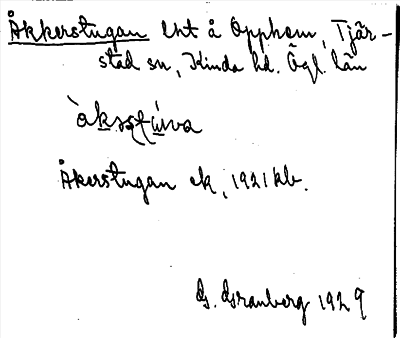 Åkkerstugan lht å Opphem, Tjär-
stad sn, Kinda hd. Ögl. län
Åkerstugan ek, 1921 kb.
G. Granberg 1929